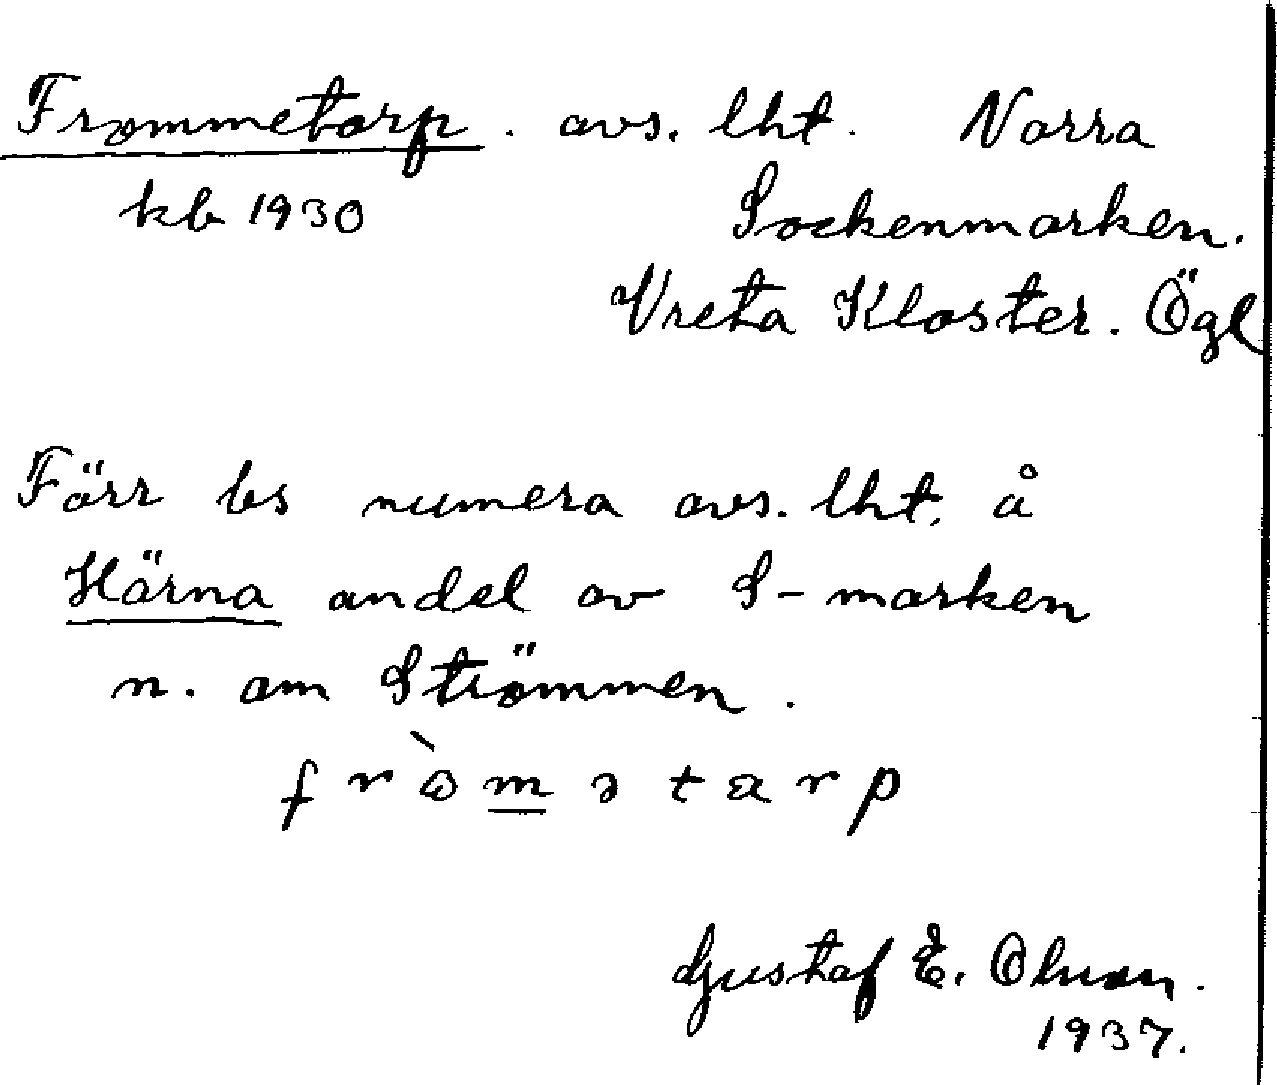 Frommetorp. avs. lht. Norra
kb 1930 Sockenmarken.
Vreta Kloster. Ögl
Förr bs numera avs. lht. å
Härna andel av S-marken
n. om Strömmen.
fròmətarp
Gustaf E. Olsson.
1937.